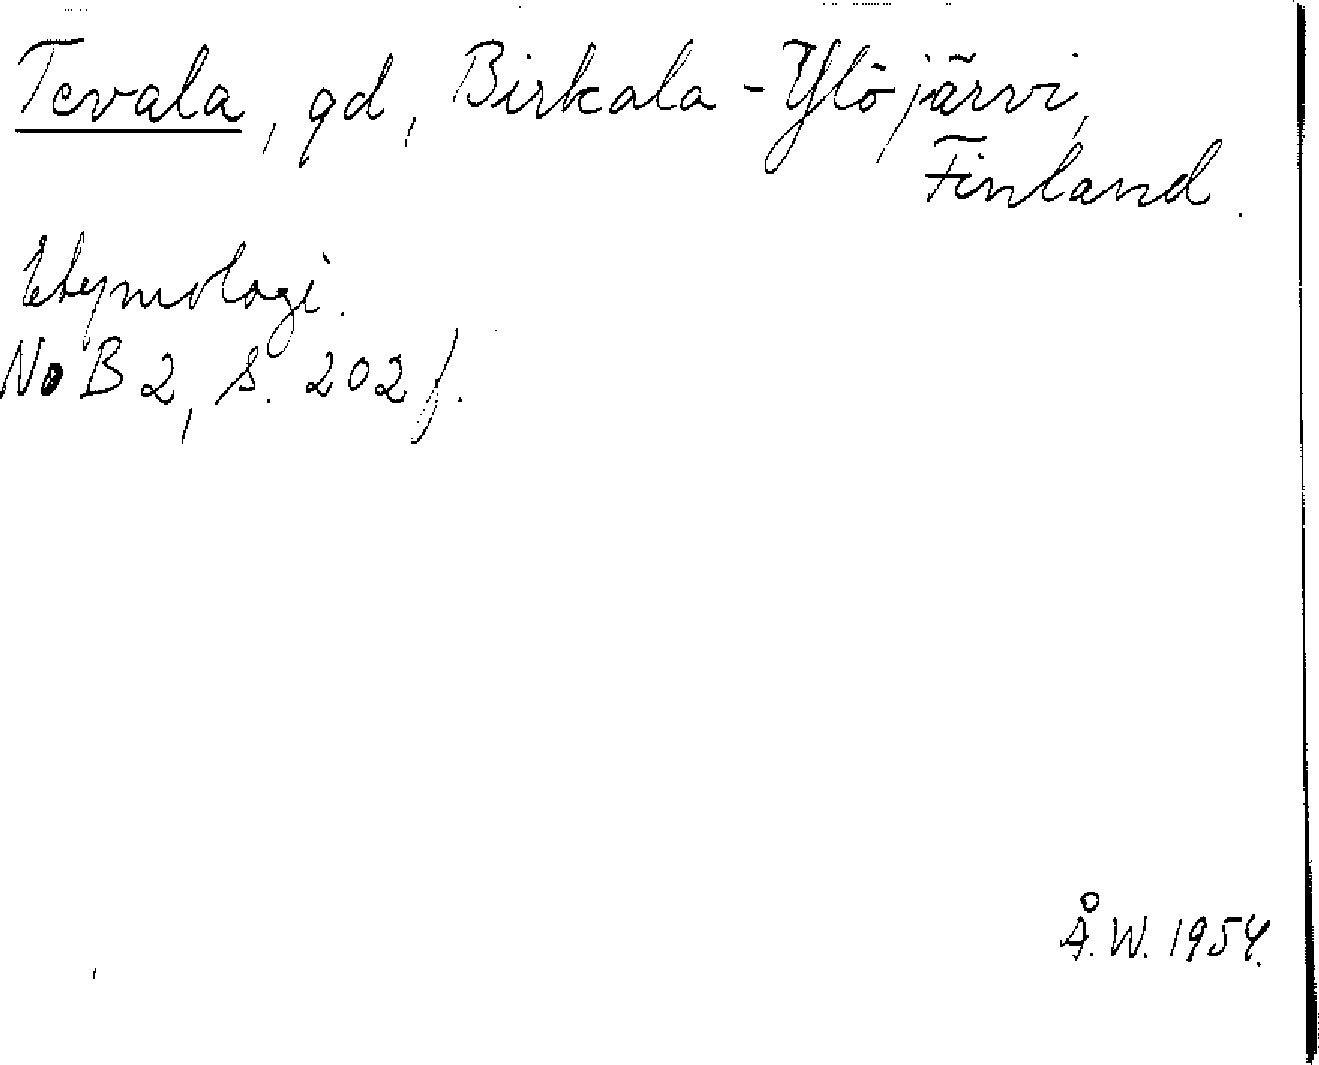 Tevala, gd, Birkala-Ylöjärvi,
Finland.
Etymologi.
NoB 2, s. 202 f.
Å.W. 1954.